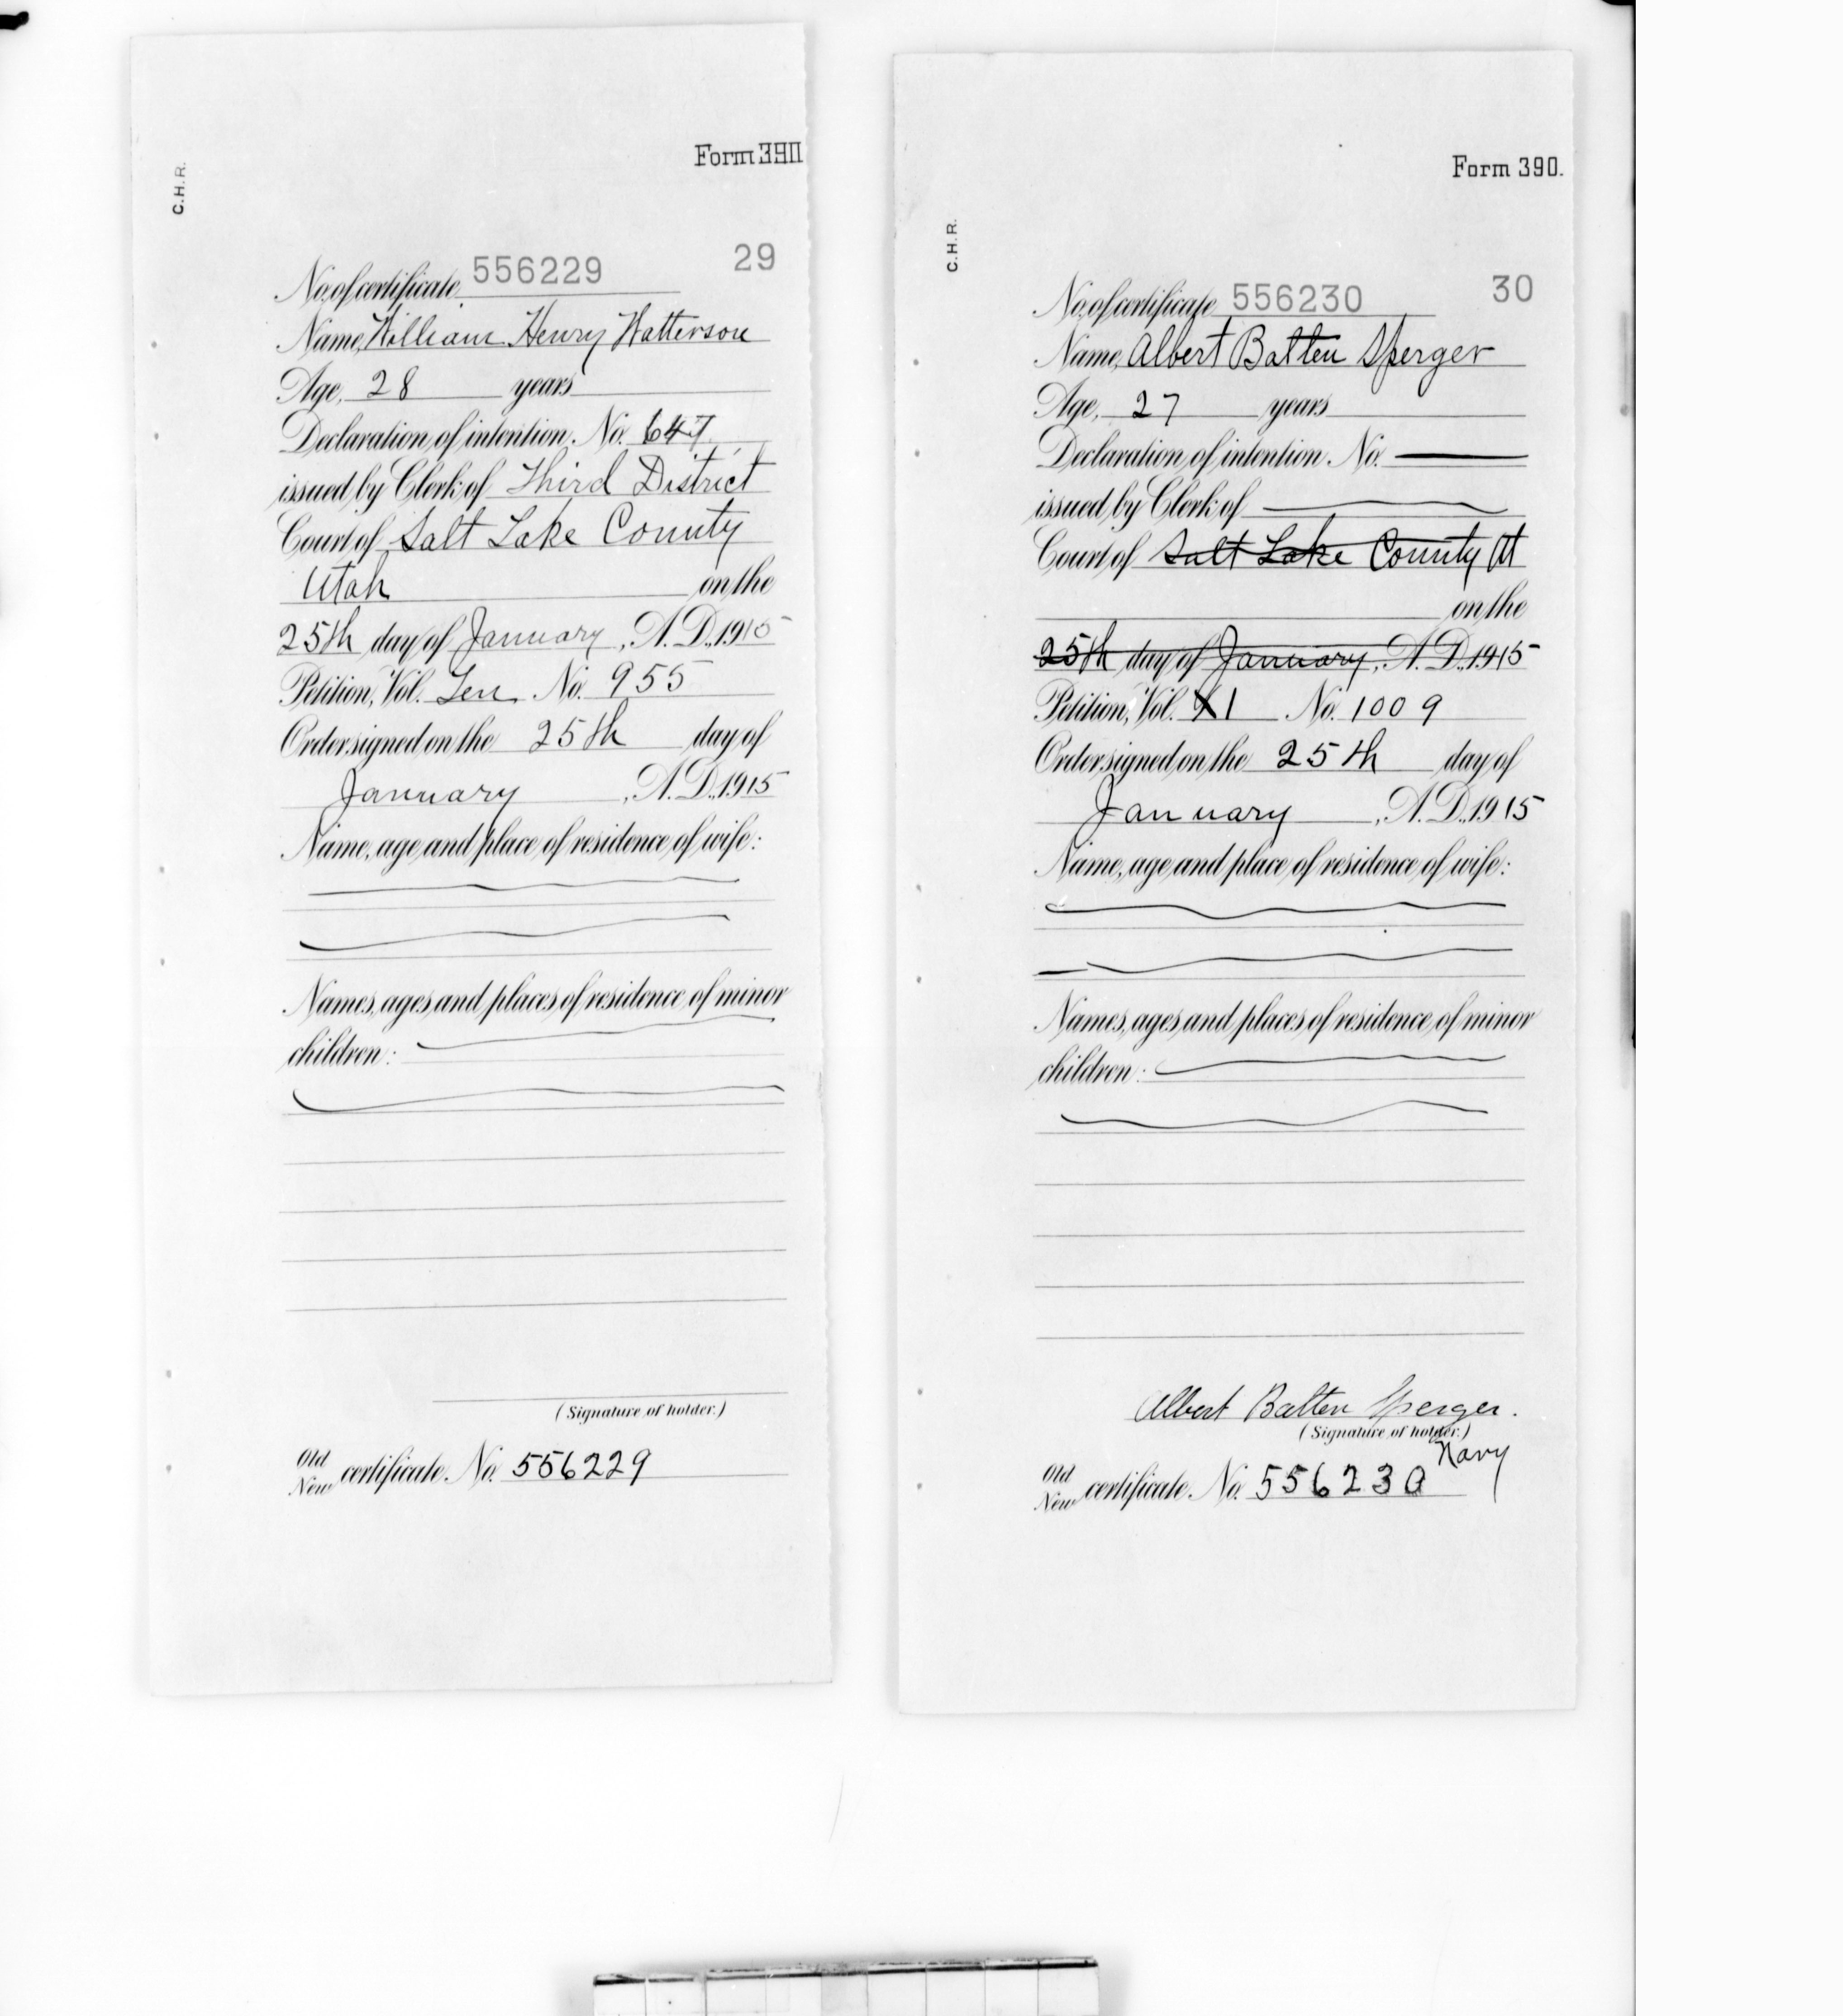 Form 390
C.H.R.
29
No. of certificate 556229
Name, William Henry Watterson
Age, 28 years
Declaration of intention No. 647
issued by Clerk of Third District
Court of Salt Lake County
Utah on the
25th day of January, A.D. 1915
Petition, Vol. Ten No. 955
Order signed on the 25th day of
January, A.D. 1915
Name, age and place of residence of wife:
Names, ages and places of residence of minor
children:
(Signature of holder.)
Old
New certificate No. 556229
Form 390.
C.H.R.
30
No. of certificate 556230
Name, Albert Batten Sperger
Age, 27 years
Declaration of intention No.
issued by Clerk of
Court of Salt Lake County Ut
on the
25th day of January, A.D. 1915
Petition, Vol. X1 No. 1009
Order signed on the 25th day of
January, A.D. 1915
Name, age and place of residence of wife:
Names, ages and places of residence of minor
children:
Albert Batten Sperger.
(Signature of holder.)
Navy
Old
New certificate No. 556230